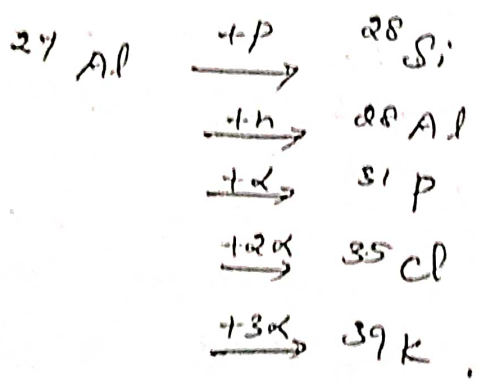 27 Al +p → 28 Si
+n → 28 Al
+α → 31 P
+2α → 35 Cl
+3α → 39 K.